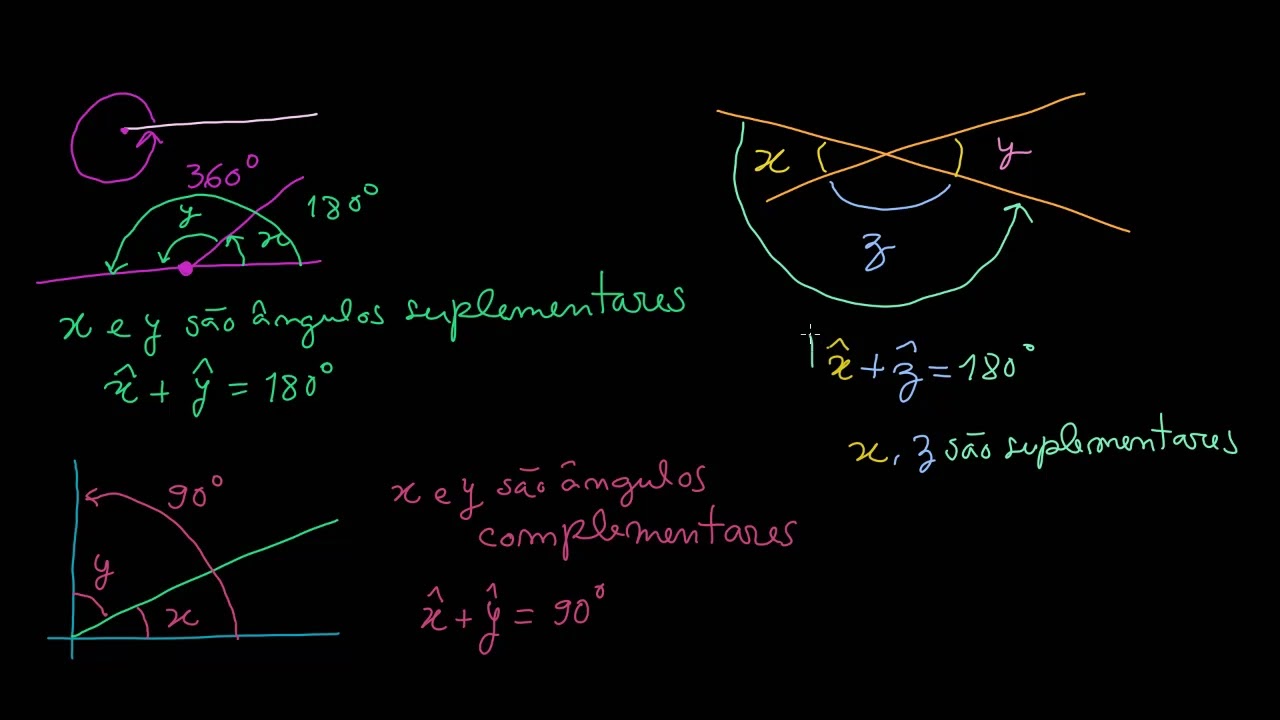 360°
180°
y
x
x e y são ângulos suplementares
x̂ + ŷ = 180°
90°
y
x
x e y são ângulos
complementares
x̂ + ŷ = 90°
x
y
z
x̂ + ẑ = 180°
x, z são suplementares